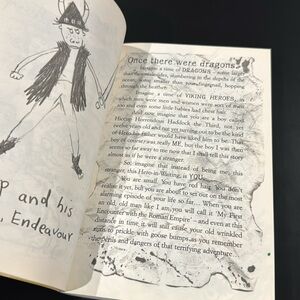 p and his
, Endeavour
Once there were dragons.
Imagine a time of DRAGONS - some larger
than mountainsides, slumbering in the depths of the
ocean; some smaller than your fingernail, hopping
through the heather.
Imagine a time of VIKING HEROES, in
which men were men and women were sort of men
too and even some little babies had chest hair.
And now imagine that you are a boy called
Hiccup Horrendous Haddock the Third, not yet
twelve years old and not yet turning out to be the kind
of Hero his father would have liked him to be. That
boy of course, was really ME, but the boy I was then
seems so far away to me now that I shall tell this story
almost as if he were a stranger.
So, imagine that instead of being me, this
stranger, this Hero-in-Waiting, is YOU.
You are small. You have red hair. You don't
realise it yet, but you are about to set out on the most
alarming episode of your life so far... When you are
an old, old man like I am, you will call it 'My First
Encounter with the Roman Empire' - and even at this
distance in time, it will still cause your old wrinkled
arms to prickle with goose bumps as you remember
the perils and dangers of that terrifying adventure...